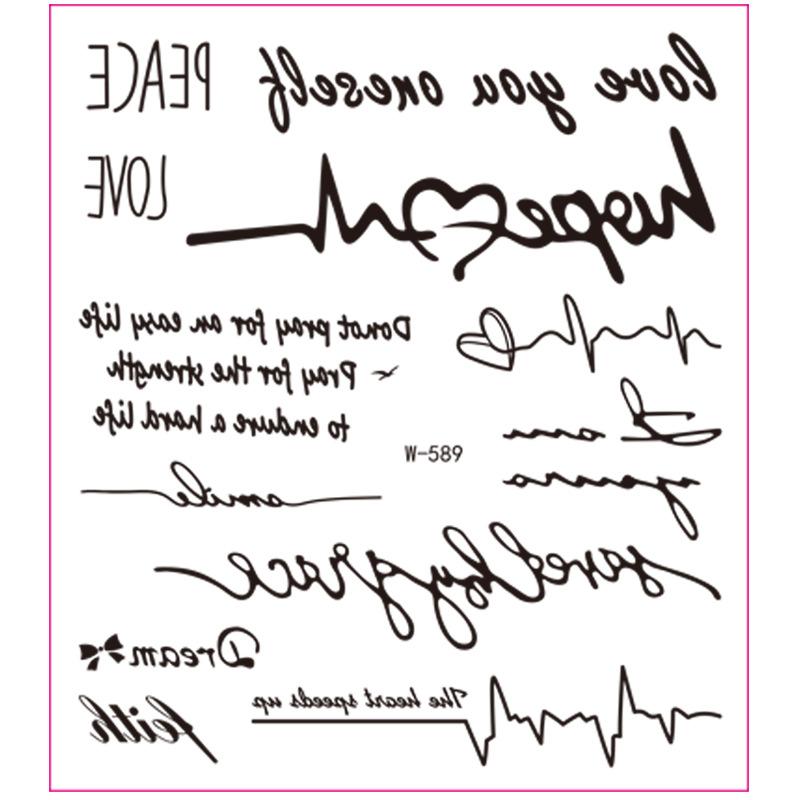 love you oneself
PEACE
hope
LOVE
Donot pray for an easy life
Pray for the strength
to endure a hard life
I am
yours
W-589
smile
saved by grace
Dream
The heart speeds up
feith